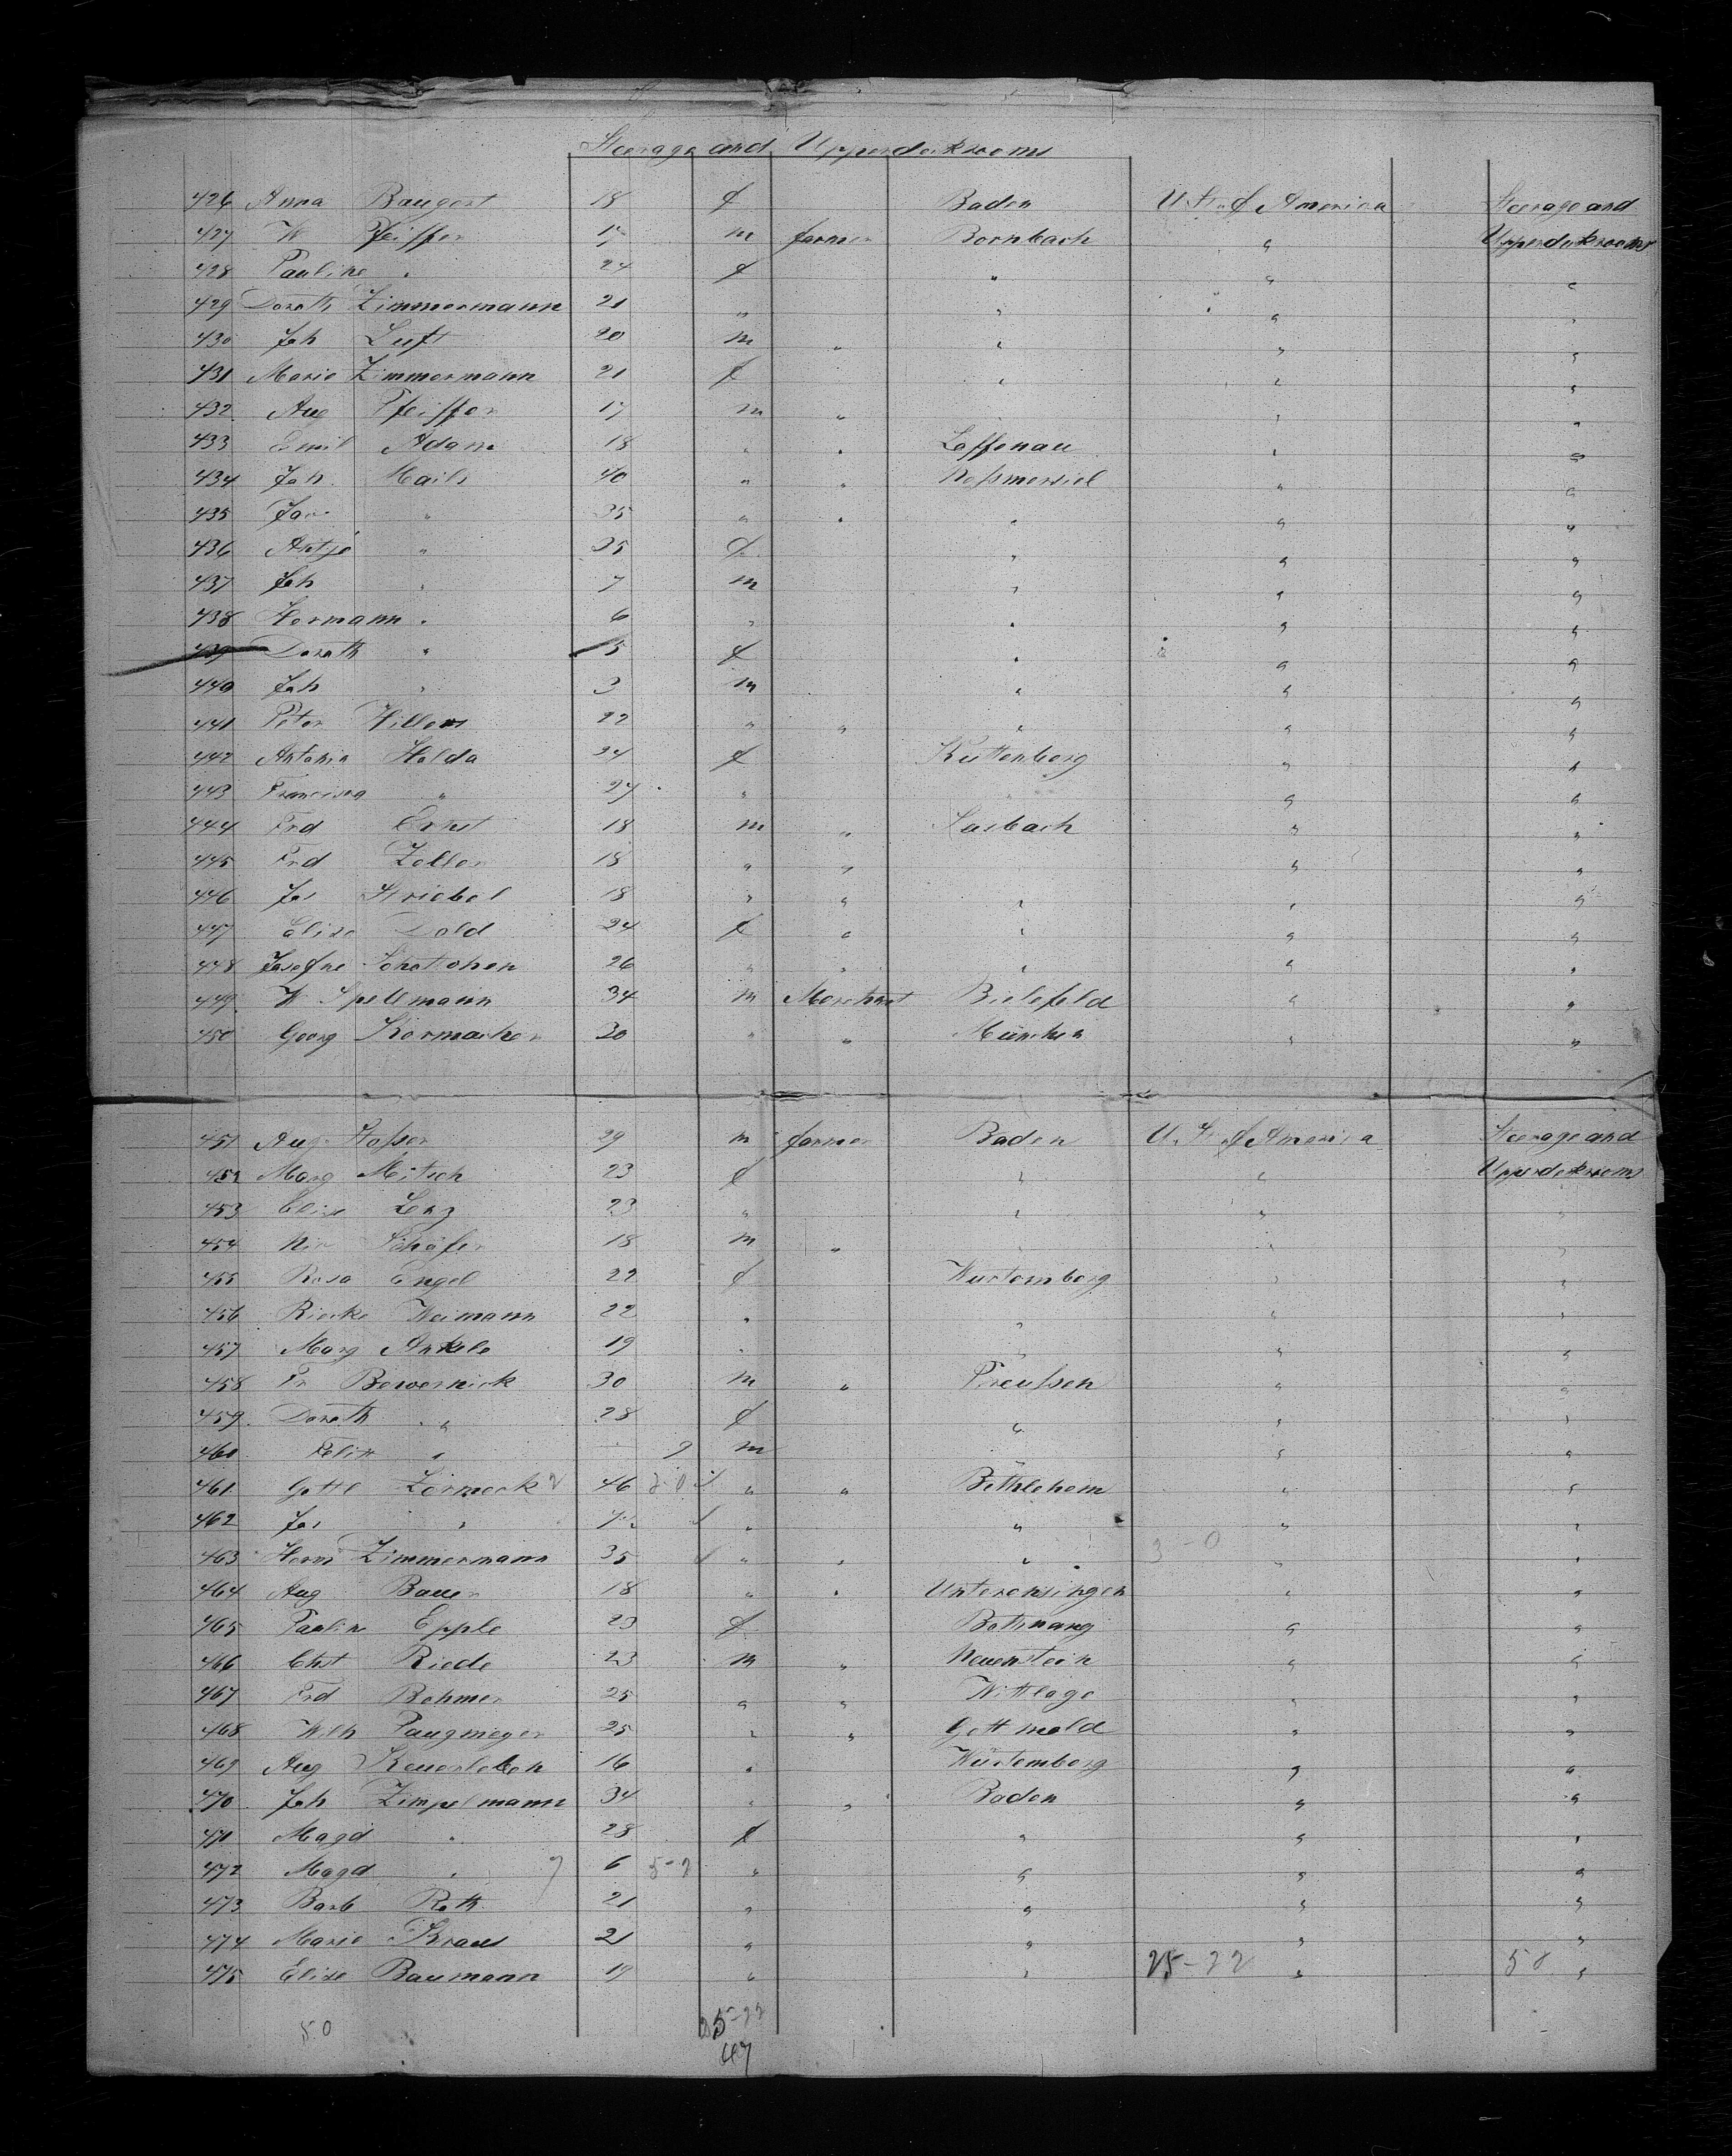 Steerage and Upperdeckrooms
426 Anna Baugert 18 f Baden U. St. of America Steerage and
427 W Pfeiffer m farmer Bornbach " Upperdeckrooms
428 Pauline " 24 f " " "
429 Doroth Zimmermann 21 " " " "
430 Joh Luft 20 m " " " "
431 Marie Zimmermann 21 f " " "
432 Aug Pfeiffer 17 m " " "
433 Emil Adam 18 " " Loffenau " "
434 Joh. Mails 40 " " Neßmersiel " "
435 " 35 " " " " "
436 Antje " 35 f " " "
437 Joh " 7 m " " "
438 Hermann " 6 " " " "
439 Doroth " 5 f " " "
440 Joh " 3 m " " "
441 Peter Willems 22 " " " " "
442 Antonia Holda 24 f Kuttenberg " "
443 Francisca " 27 " " " "
444 Frd Ernst 18 m " Sasbach " "
445 Frd Zeller 18 " " " "
446 Jos Striebel 18 " " " " "
447 Elise Dold 24 f " " " "
448 Josefine 26 " " " " "
449 W Spellmann 34 m Merchant Bielefeld " "
450 Georg Kormacher 30 " " München " "
451 Aug. 29 m farmer Baden U. St. of America Steerage and
452 Marg Mitsch 23 f " " Upperdeckrooms
453 Elise Lenz 23 " " " "
454 Schäfer 18 m " " " "
455 Rosa Engel 22 f Wurtemberg " "
456 Rieke Weimann 22 " " " "
457 Marg Ankele 19 " " " "
458 Fr Bewernick 30 m " Preußen " "
459 Doroth " 28 f " " "
460 " m " " "
461 Gottl Zermeck 46 " " Bethlehem " "
462 Jos " " " " "
463 Herm Zimmermann 35 " " " 3-0 " "
464 Aug Bauer 18 " " Unterensingen " "
465 Paulin Epple 23 f Botnang " "
466 Chst Riede 23 m " Neuenstein " "
467 Frd Bohmer 25 " " Wittlage " "
468 Wilh 25 " " " "
469 Aug 16 " Würtemberg " "
470 Joh Zimpelmann 34 " " Baden " "
471 Magd " 28 f " " "
472 Magd " 6 " " " "
473 Barb Roth 21 " " " "
474 Marie Kraus 21 " " " "
475 Elise Baumann 19 " " 25-22 " 50 "
50 25-22
47